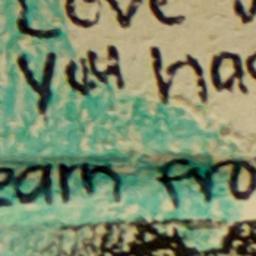 Love
you ha
earn fro